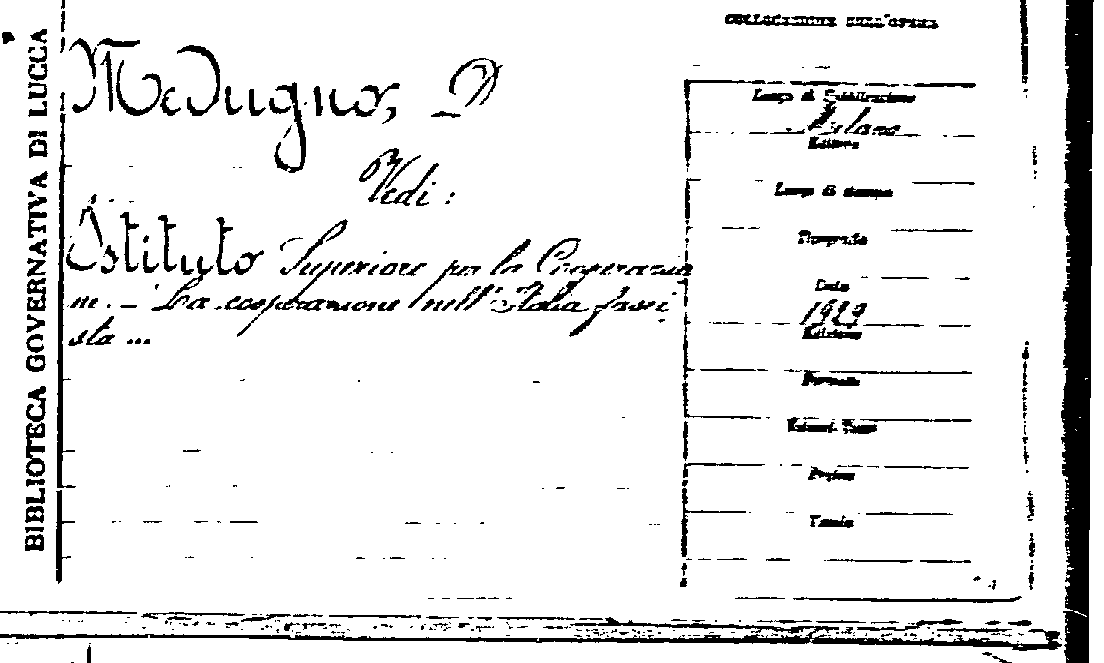 BIBLIOTECA GOVERNATIVA DI LUCCA
COLLOCAZIONE DELL'OPERA
Medugno, D
Vedi:
Istituto Superiore per la Cooperazio
ne. – La cooperazione nell'Italia fasci
sta ...
Luogo di Pubblicazione
Milano
Editore
Luogo di stampa
Tipografia
Data
1929
Edizione
Formato
Volumi-Tomi
Pagine
Tavole